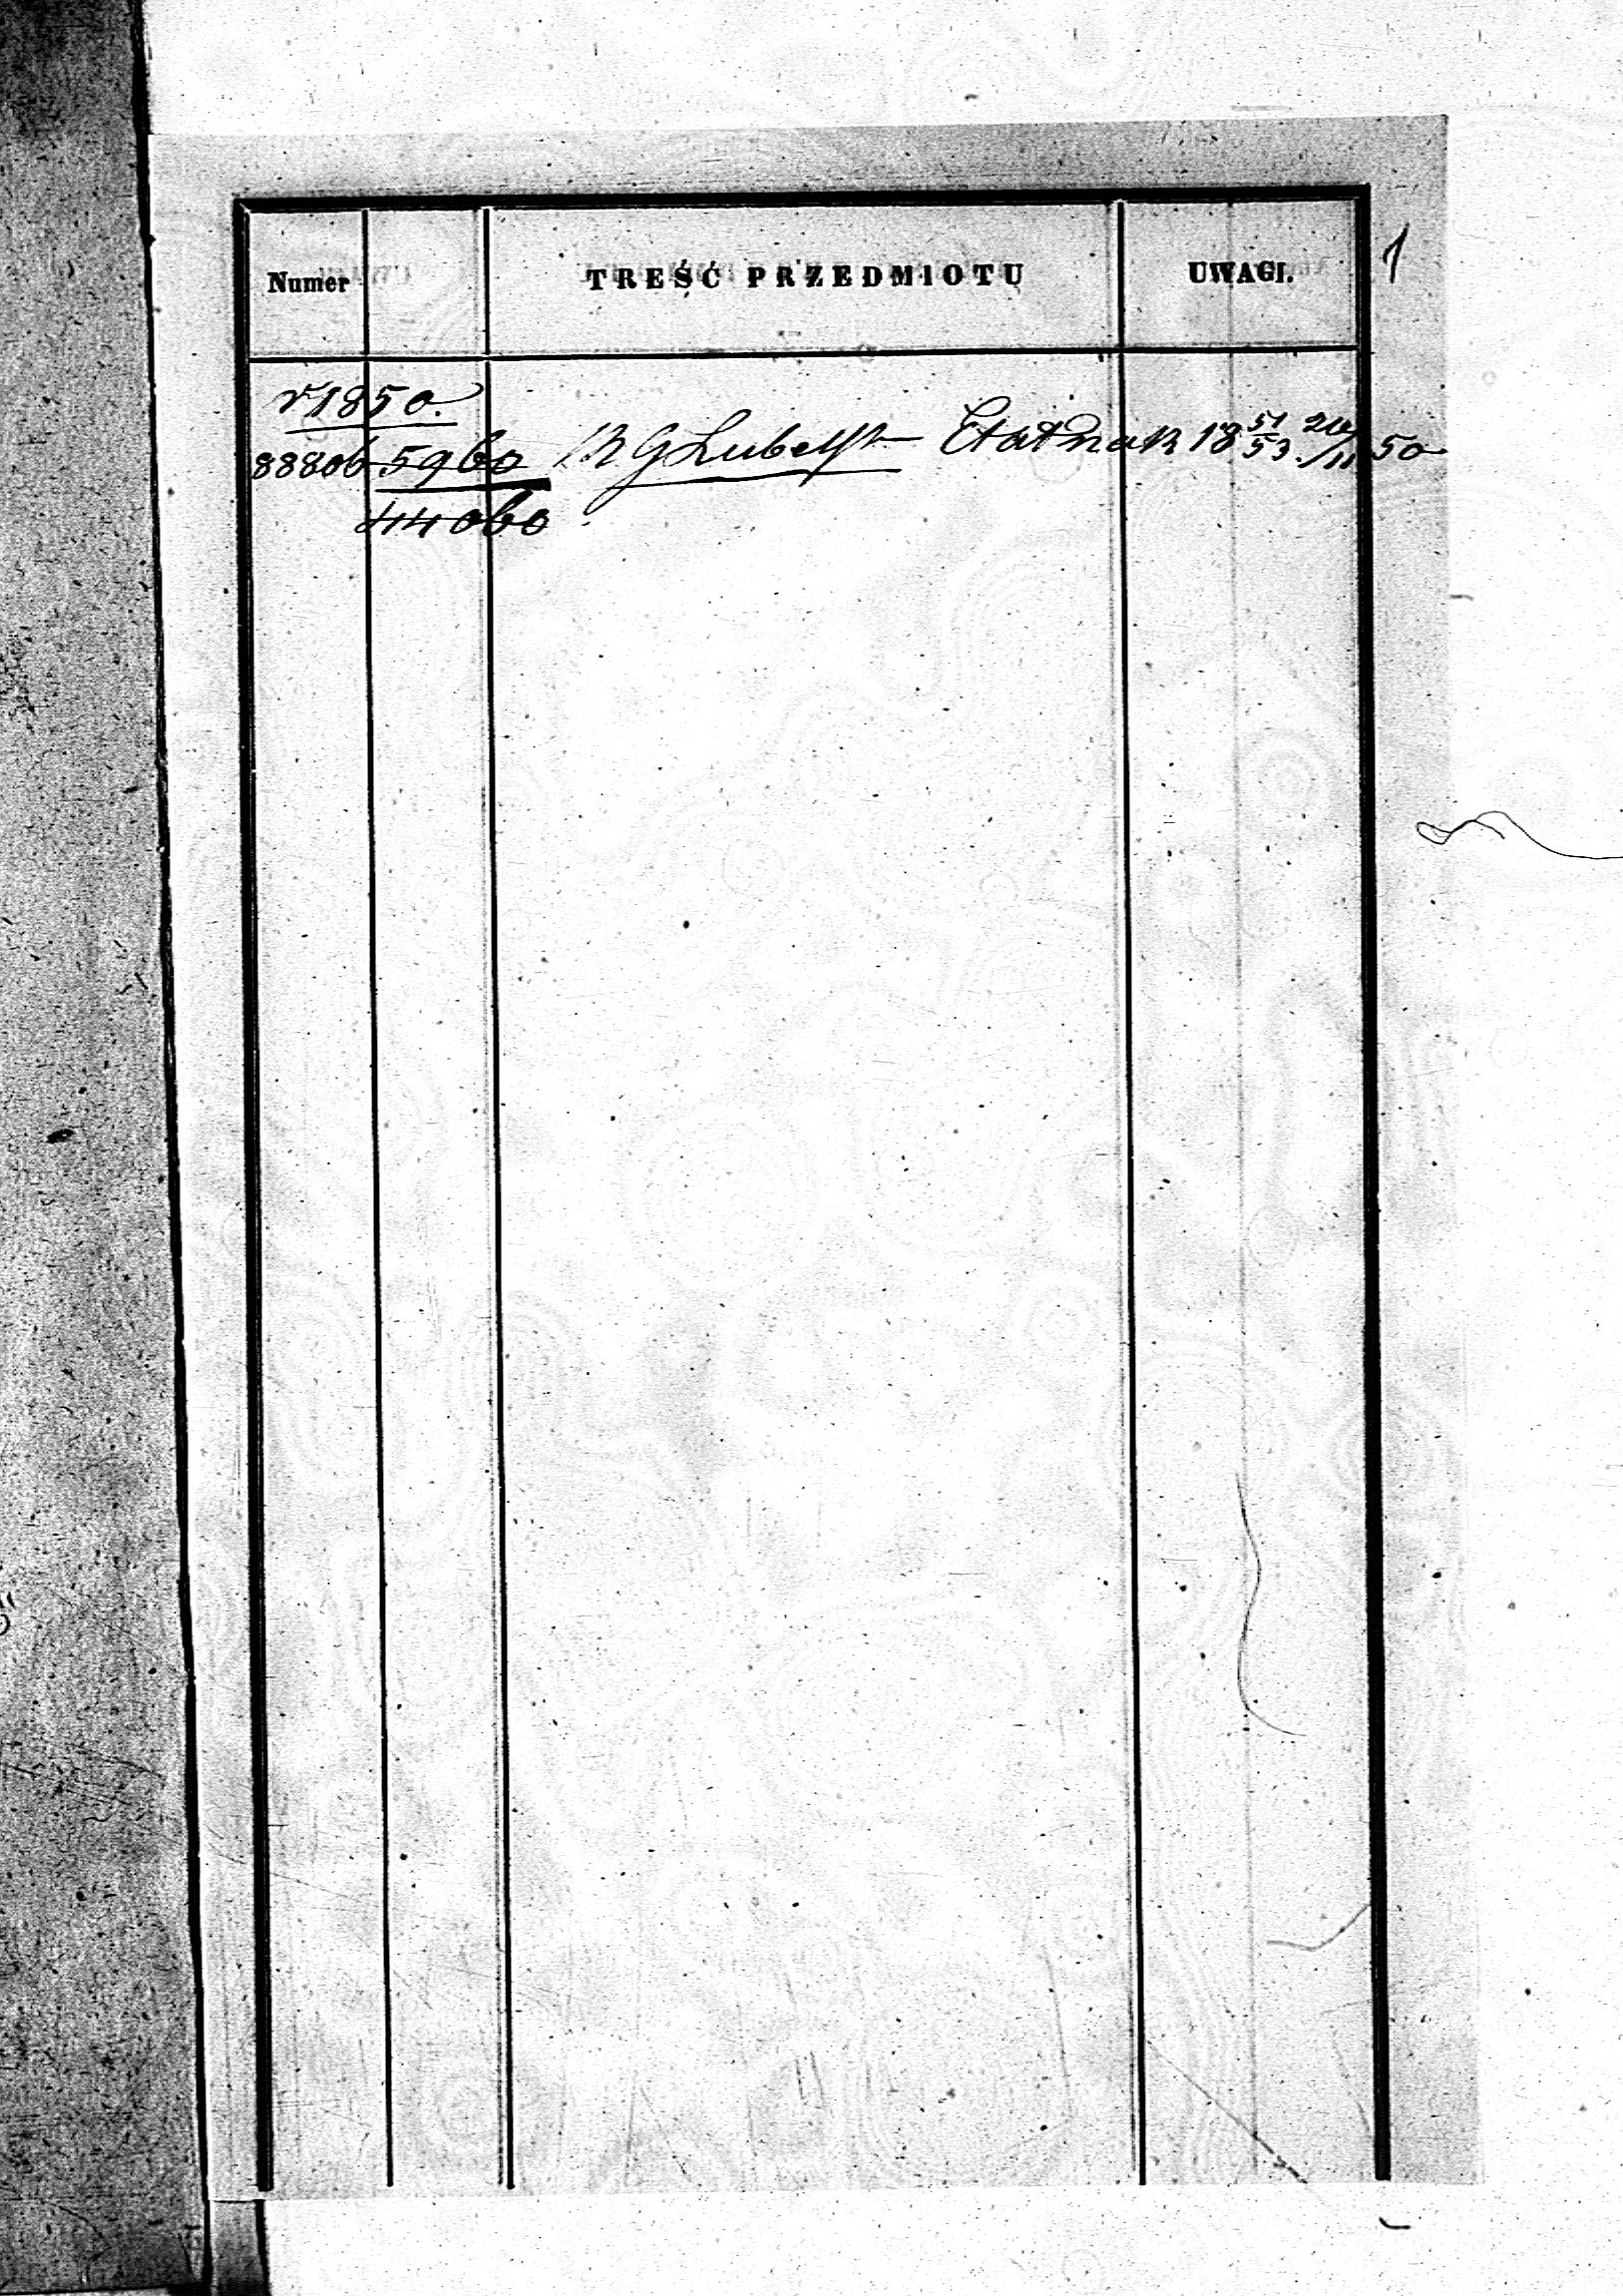 1
Numer TREŚĆ PRZEDMIOTU UWAGI.
r 1850.
88806 5960 R G Lubelsk Etat na R 18 51/53. 20/11 50
44060